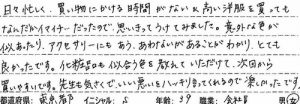 日々忙しく、買い物にかける時間がない&高い洋服を買っても
なんだかイマイチ…だったので、思いきってうけてみました。意外な色が
似あったり、アクセサリーにも あう、あわないがあることがわかり、とても
良かったです。化粧品も似合う色を教えていただけて、次回から
買いやすいです。先生も気さくでいい悪いをハッキリ言ってくれるので楽しかったです。
都道府県: 東京都 イニシャル: 年齢: 39 職業: 会社員